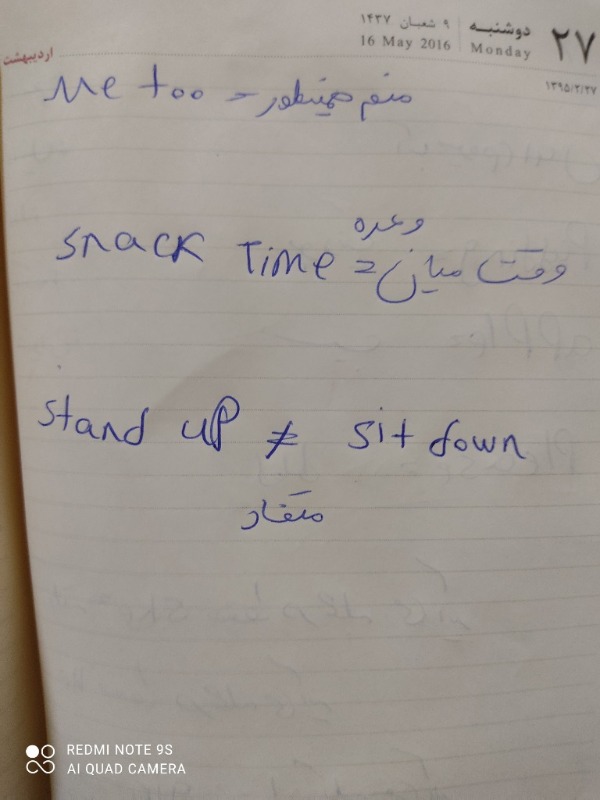 اردیبهشت
۹ شعبان ۱۴۳۷
16 May 2016
دوشنبه
Monday
۲۷
۱۳۹۵/۲/۲۷
Me too = منم همینطور
snack Time = وقت میان وعده
stand up ≠ sit down
متضاد
REDMI NOTE 9S
AI QUAD CAMERA